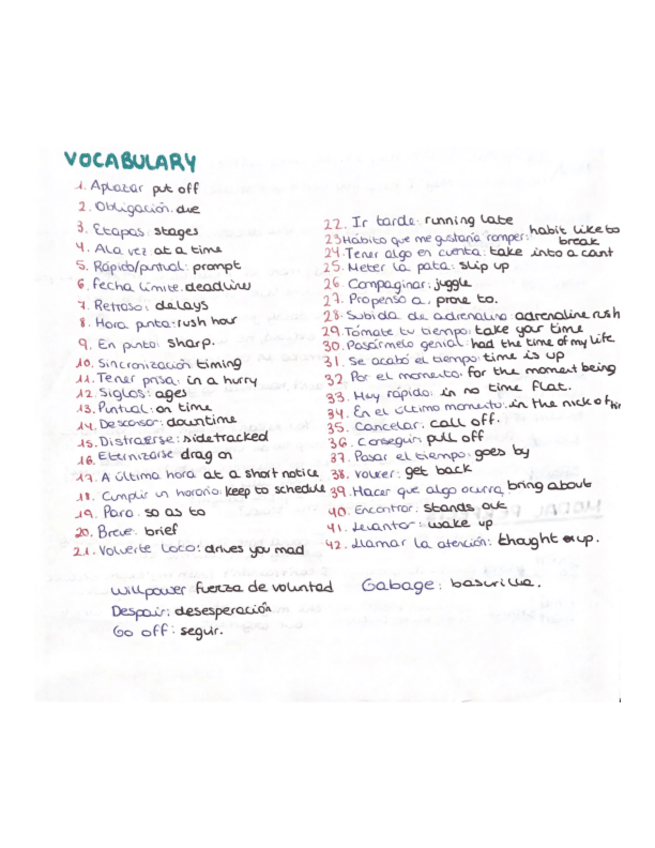 VOCABULARY
1. Aplazar put off
2. Obligación: due
3. Etapas: stages
4. A la vez: at a time
5. Rápido/puntual: prompt
6. Fecha límite: deadline
7. Retraso: delays
8. Hora punta: rush hour
9. En punto: sharp.
10. Sincronización timing
11. Tener prisa: in a hurry
12. Siglos: ages
13. Puntual: on time
14. Descanso: downtime
15. Distraerse: sidetracked
16. Eternizarse drag on
17. A última hora at a short notice
18. Cumplir un horario: keep to schedule
19. Para: so as to
20. Breve: brief
21. Volverte loco: drives you mad
22. Ir tarde: running late
23 Hábito que me gustaría romper: habit like to
break
24. Tener algo en cuenta: take into a cant
25. Meter la pata: slip up
26. Compaginar: juggle
27. Propenso a, prone to.
28. Subida de adrenalina adrenaline rush
29. Tómate tu tiempo: take your time
30. Pasármelo genial: had the time of my life
31. Se acabó el tiempo: time is up
32. Por el momento: for the moment being
33. Muy rápido: in no time flat.
34. En el último momento: in the nick of
35. Cancelar: call off.
36. Conseguir: pull off
37. Pasar el tiempo: goes by
38. volver: get back
39. Hacer que algo ocurra: bring about
40. Encontrar: stands out
41. Levantar: wake up
42. Llamar la atención: thought up.
Willpower fuerza de voluntad
Gabage: basurilla.
Despair: desesperación
Go off: seguir.